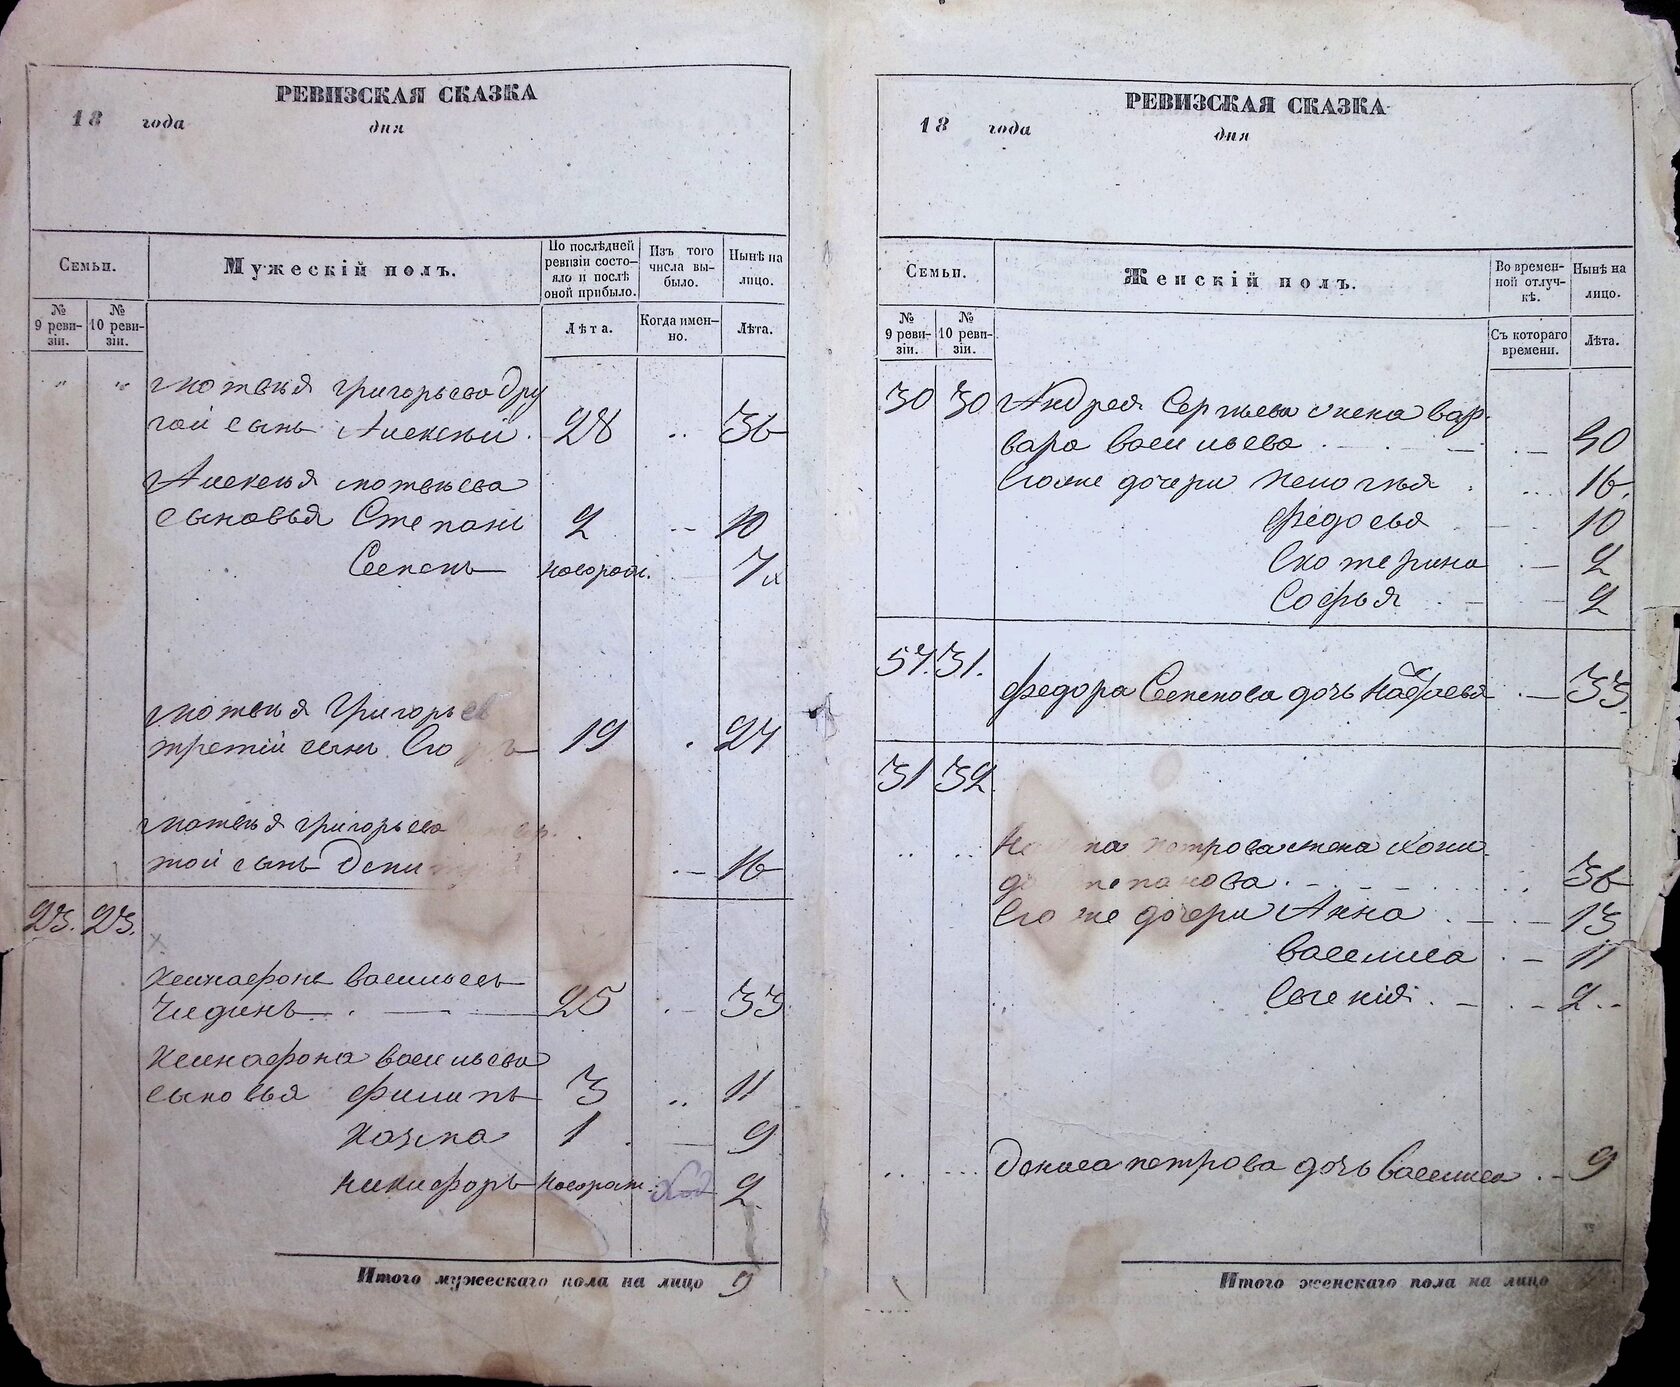 РЕВИЗСКАЯ СКАЗКА
18 года дня
Семьи.
Мужескій полъ.
По послѣдней ревизіи состояло и послѣ оной прибыло.
Изъ того числа выбыло.
Нынѣ на лицо.
№ 9 ревизіи.
№ 10 ревизіи.
Лѣта.
Когда именно.
Лѣта.
" " Матвѣя Григорьева дру
гой сынъ Алексѣй . 28 .. 36
Алексѣя Матвѣева
сыновья Степанъ 2 .. 10
Семенъ новорож. 7
Матвѣя Григорьев
третій сынъ Его 19 . 27
Матвѣя Григорьева
той сынъ 16
23. 23.
Ксенофонъ Васильевъ
25 .. 33
Ксенофона Васильева
сыновья Филипъ 3 .. 11
Козма 1 . 9
Никифоръ новорож. 2
Итого мужескаго пола на лицо 9
РЕВИЗСКАЯ СКАЗКА
18 года дня
Семьи.
Женскій полъ.
Во временной отлучкѣ.
Нынѣ на лицо.
№ 9 ревизіи.
№ 10 ревизіи.
Съ котораго времени.
Лѣта.
30 30 Андрея Сергѣева жена Вар
вара Васильева 40
Егоже дочери Пелогѣя 16.
Федосья 10
Екотерина 2
Софья 2
57. 31.
Федора Семенова дочь 33.
31 32
Петрова жена
36
Его же дочери Анна 13
Василиса 11
Евгенія 2
Дениса Петрова дочь Василиса 9
Итого женскаго пола на лицо